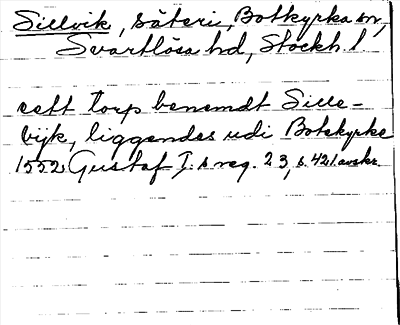 Sillvik, säteri, Botkyrka sn,
Svartlösa hd, Stockh. l
eett torp benemdt Sille-
vijk, liggendes udi Botekyrke
1552 Gustaf I:s reg. 23, s. 421 avskr.